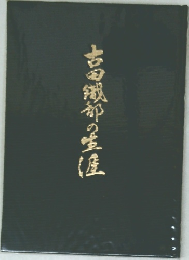 古田織部の生涯